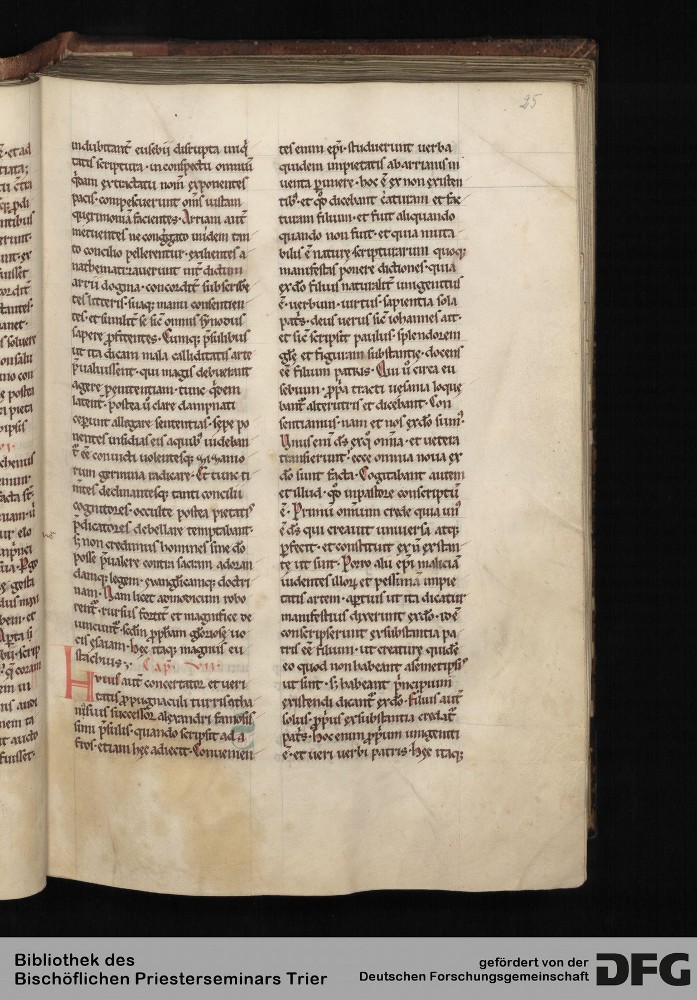 25
indubitant eusebii disrupta iniq
tatis scriptura · in conspectu omniū
qdam ex tractatu nomī exponentes
pacis · compescuerunt oms iustam
querimoniā facientes · Arriani aūt
metuentes ne congregato inidem tan
to concilio pellerentur · exilientes a
nathematizauerunt int dictum
arrii dogma · concordit subscribē
tes litteris · suaq; manu consentien
tes · et similit se sic omnis synodus
sapere profitentes · Cumq; psulibus
ut ita dicam mala calliditatis arte
pualuissent · qui magis debuerant
agere penitentiam · tunc qdem
latent · postea u clare dampnati
ceperunt allegare sententias · sepe po
nentes insidias eis a quib uideban
ee conuicti uolentesq; zizanio
rum germina radicare · Et tunc ti
mtes declinantesq; tanti concilii
cognitores · occulte postea pietatis
pdicatores debellare temptabant ·
S; non credimus homines sine do
posse pualere contra sacram adoran
damq; legem · ewangelicamq; doctri
nam · Nam licet
rent · rursus fortit et magnifice de
uincunt · sedm ppham gloriose uo
cis esaiam · hec itaq; magnus eu
stachius ·, Cap · VII ·
Hrius aūt concertator et ueri
tatis propugnaculi turris atha
nasius successor alexandri famosis
simi psulis · quando scripsit ad a
fros · etiam hec adiecit · Conuenien
tes enim epi · studuerunt uerba
quidem impietatis ab arrianis in
uenta pimere · hoc e ex non existen
tib · et qd dicebant creaturam et fac
turam filium · et fuit aliquando
quando non fuit · et quia muta
bilis e nature · scripturarum quoq;
manifestas ponere dictiones · quia
ex do filius naturalit unigenitus
e · uerbum · uirtus · sapientia sola
patris · deus uerus sic iohannes ait ·
et sic scripsit paulus · splendorem
glorie et figuram substantie · docens
ee filium patris · Qui u circa eu
sebium · ppa tracti uesania loque
bant alterutris et dicebant · Con
sentiamus · nam et nos ex do sum
Unus eni ds ex q omnia · et uetera
transierunt · ecce omnia noua ex
do sunt facta · Cogitabant autem
et illud · qd in pastore conscriptū
e · Primū omnium crede quia un
e ds qui creauit uniuersa atq;
perfecit · et constituit ex n existan
te ut sint · Porro alii epi maliciā
uidentes illorum et pessimā impie
tatis artem · apertius ut ita dicatur
manifestius dixerunt ex do · id e
conscripserunt ex substantia pa
tris ee filium · ut creature quidē
eo quod non habeant asemetipsis
ut sint · s; habeant principium
existendi dicant ex do · filius aūt
solus · pprius ex substantia credat
patris · hoc enim pprium unigeniti
e · et ueri uerbi patris · hec itaq;
Bibliothek des
Bischöflichen Priesterseminars Trier
gefördert von der
Deutschen Forschungsgemeinschaft
DFG